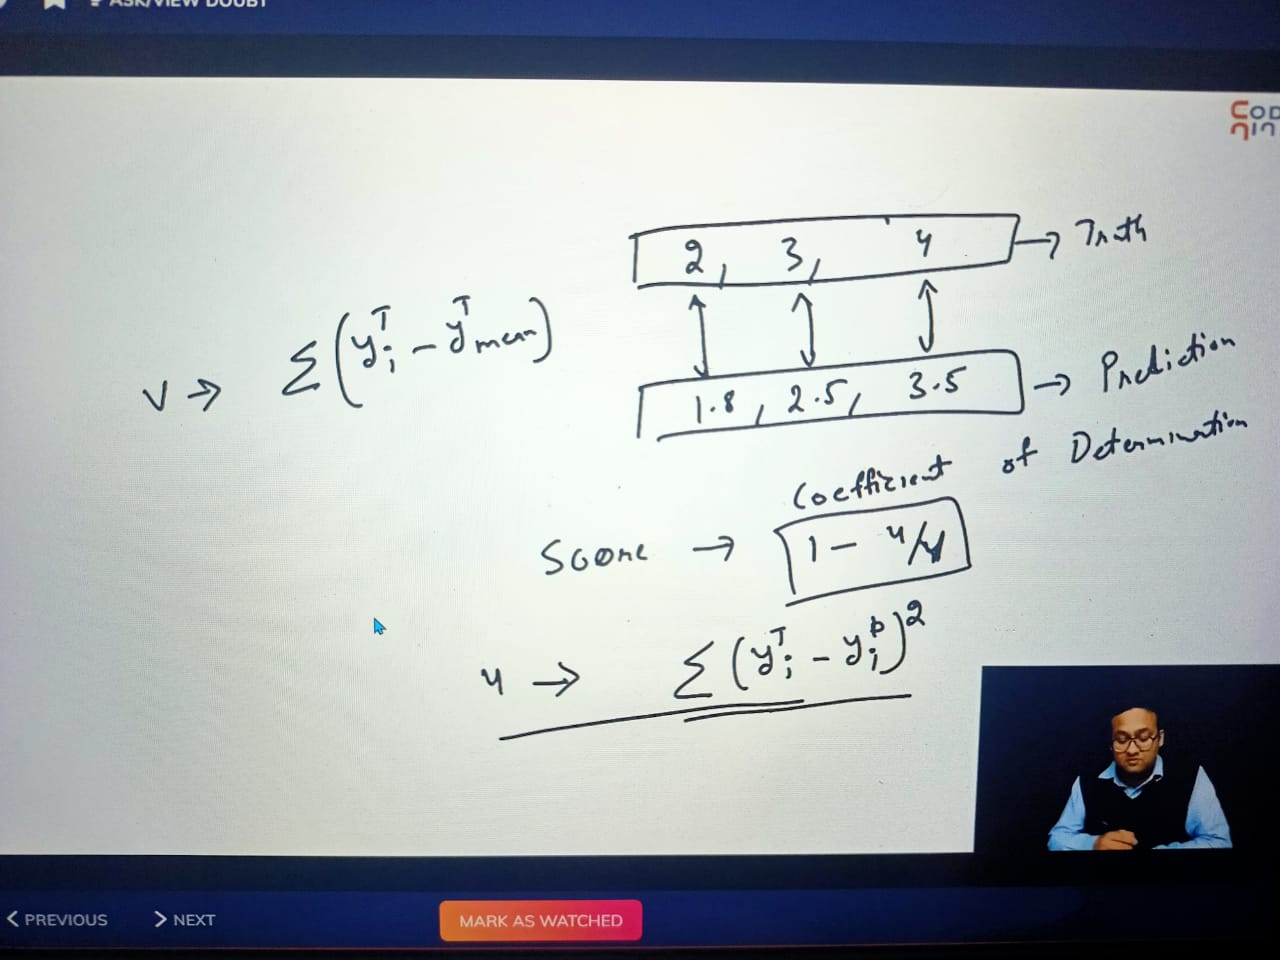 ASK/VIEW DOUBT
COD
NIN
2, 3, 4 → Truth
V → Σ(yᵢᵀ - yᵀmean)
1.8, 2.5, 3.5 → Prediction
Coefficient of Determination
Score → 1 - u/v
u → Σ(yᵢᵀ - yᵢᵖ)²
PREVIOUS
NEXT
MARK AS WATCHED